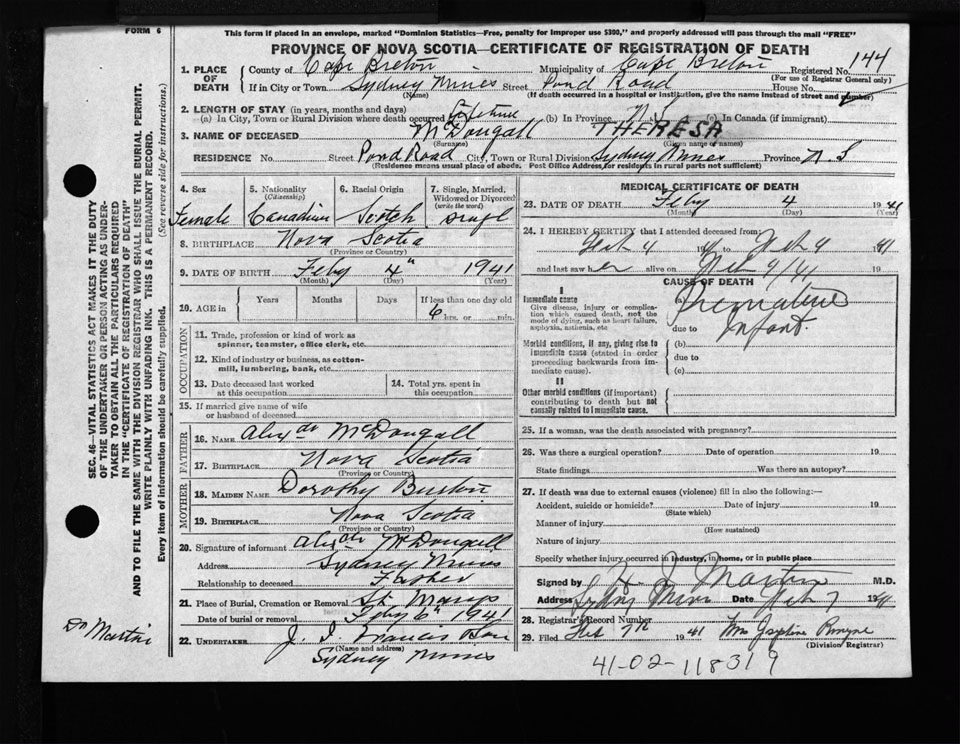 FORM 6
This form if placed in an envelope, marked "Dominion Statistics—Free, penalty for improper use $300," and properly addressed will pass through the mail "FREE"
PROVINCE OF NOVA SCOTIA—CERTIFICATE OF REGISTRATION OF DEATH
1. PLACE OF DEATH County of Cape Breton Municipality of Cape Breton Registered No. 144
(For use of Registrar General only)
If in City or Town Sydney Mines Street Pond Road House No.
(Name) (If death occurred in a hospital or institution, give the name instead of street and number)
2. LENGTH OF STAY (in years, months and days)
(a) In City, Town or Rural Division where death occurred Lifetime (b) In Province (c) In Canada (if immigrant)
3. NAME OF DECEASED McDougall THERESA
(Surname) (Given name or names)
RESIDENCE No. Street Pond Road City, Town or Rural Division Sydney Mines Province N S
(Residence means usual place of abode. Post Office Address for residents in rural parts not sufficient)
4. Sex Female
5. Nationality (Citizenship) Canadian
6. Racial Origin Scotch
7. Single, Married, Widowed or Divorced (write the word) Singl
8. BIRTHPLACE Nova Scotia
(Province or Country)
9. DATE OF BIRTH Feby 4" 1941
(Month) (Day) (Year)
10. AGE in Years Months Days If less than one day old
6 hrs. or min.
OCCUPATION
11. Trade, profession or kind of work as spinner, teamster, office clerk, etc.
12. Kind of industry or business, as cotton-mill, lumbering, bank, etc.
13. Date deceased last worked at this occupation
14. Total yrs. spent in this occupation
15. If married give name of wife or husband of deceased
FATHER
16. NAME Alexdr McDougall
17. BIRTHPLACE Nova Scotia
(Province or Country)
MOTHER
18. MAIDEN NAME Dorothy
19. BIRTHPLACE Nova Scotia
(Province or Country)
20. Signature of informant Alexdr McDougall
Address Sydney Mines
Relationship to deceased Father
21. Place of Burial, Cremation or Removal St. Marys
Date of burial or removal Feby 6" 1941
22. UNDERTAKER J. J. Francis
(Name and address)
Sydney Mines
MEDICAL CERTIFICATE OF DEATH
23. DATE OF DEATH Feby 4 1941
(Month) (Day) (Year)
24. I HEREBY CERTIFY that I attended deceased from:
Feb 4 to Feb 4 1941
and last saw er alive on Feb 4/41 19
CAUSE OF DEATH
I
Immediate cause
Give disease, injury or complication which caused death, not the mode of dying, such as heart failure, asphyxia, asthenia, etc
(a) Premature
due to Infant.
Morbid conditions, if any, giving rise to immediate cause (stated in order proceeding backwards from immediate cause).
(b)
due to
(c)
II
Other morbid conditions (if important) contributing to death but not causally related to immediate cause.
25. If a woman, was the death associated with pregnancy?
26. Was there a surgical operation? Date of operation 19
State findings Was there an autopsy?
27. If death was due to external causes (violence) fill in also the following:—
Accident, suicide or homicide? Date of injury 19
(State which)
Manner of injury
(How sustained)
Nature of injury
Specify whether injury occurred in industry, in home, or in public place
Signed by Martin M.D.
Address Sydney Mines Date Feb 7 1941
28. Registrar's Record Number
29. Filed Feb 7th 1941 Mrs Josephine
(Division Registrar)
41-02-118319
SEC. 46—VITAL STATISTICS ACT MAKES IT THE DUTY
OF THE UNDERTAKER OR PERSON ACTING AS UNDER-
TAKER TO OBTAIN ALL THE PARTICULARS REQUIRED
IN THE "CERTIFICATE OF REGISTRATION OF DEATH"
AND TO FILE THE SAME WITH THE DIVISION REGISTRAR WHO SHALL ISSUE THE BURIAL PERMIT.
WRITE PLAINLY WITH UNFADING INK. THIS IS A PERMANENT RECORD.
Every item of information should be carefully supplied. (See reverse side for instructions.)
Dr Martin